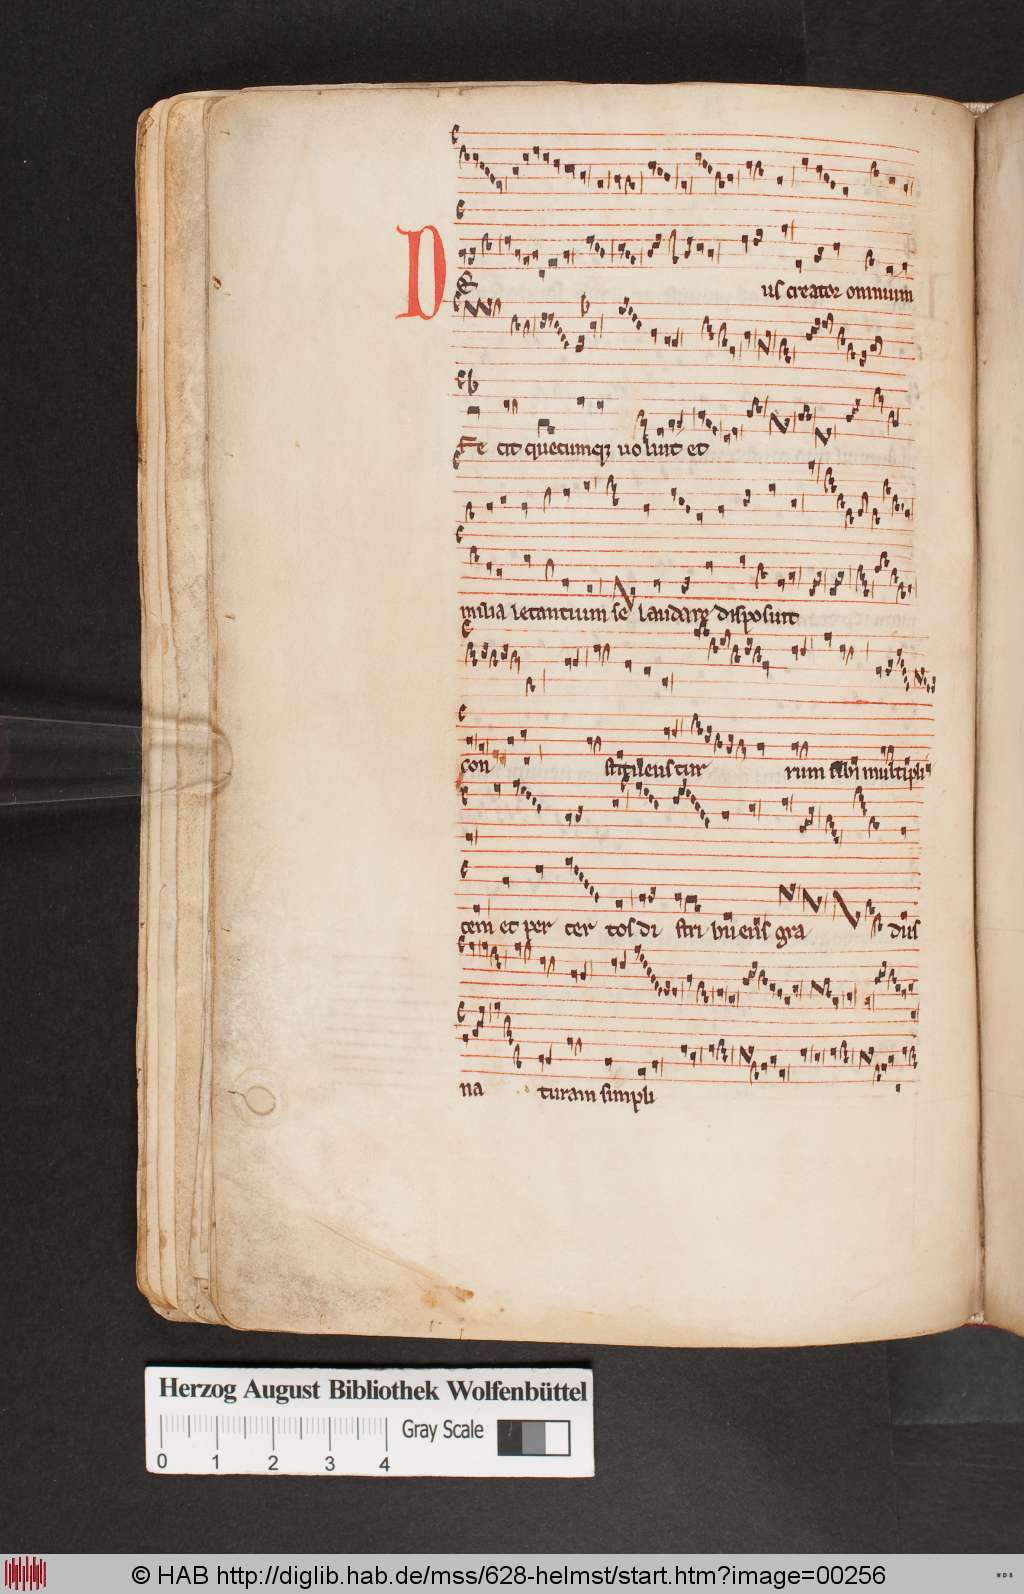 DE us creator omnium
Fe cit quecumq; uoluit et
milia letantium se laudare disposuit
con stituens tur rum sibi multipli
cem et per cer tos di stri buens gra dus
na turam simpli
Herzog August Bibliothek Wolfenbüttel
Gray Scale
0 1 2 3 4
© HAB http://diglib.hab.de/mss/628-helmst/start.htm?image=00256